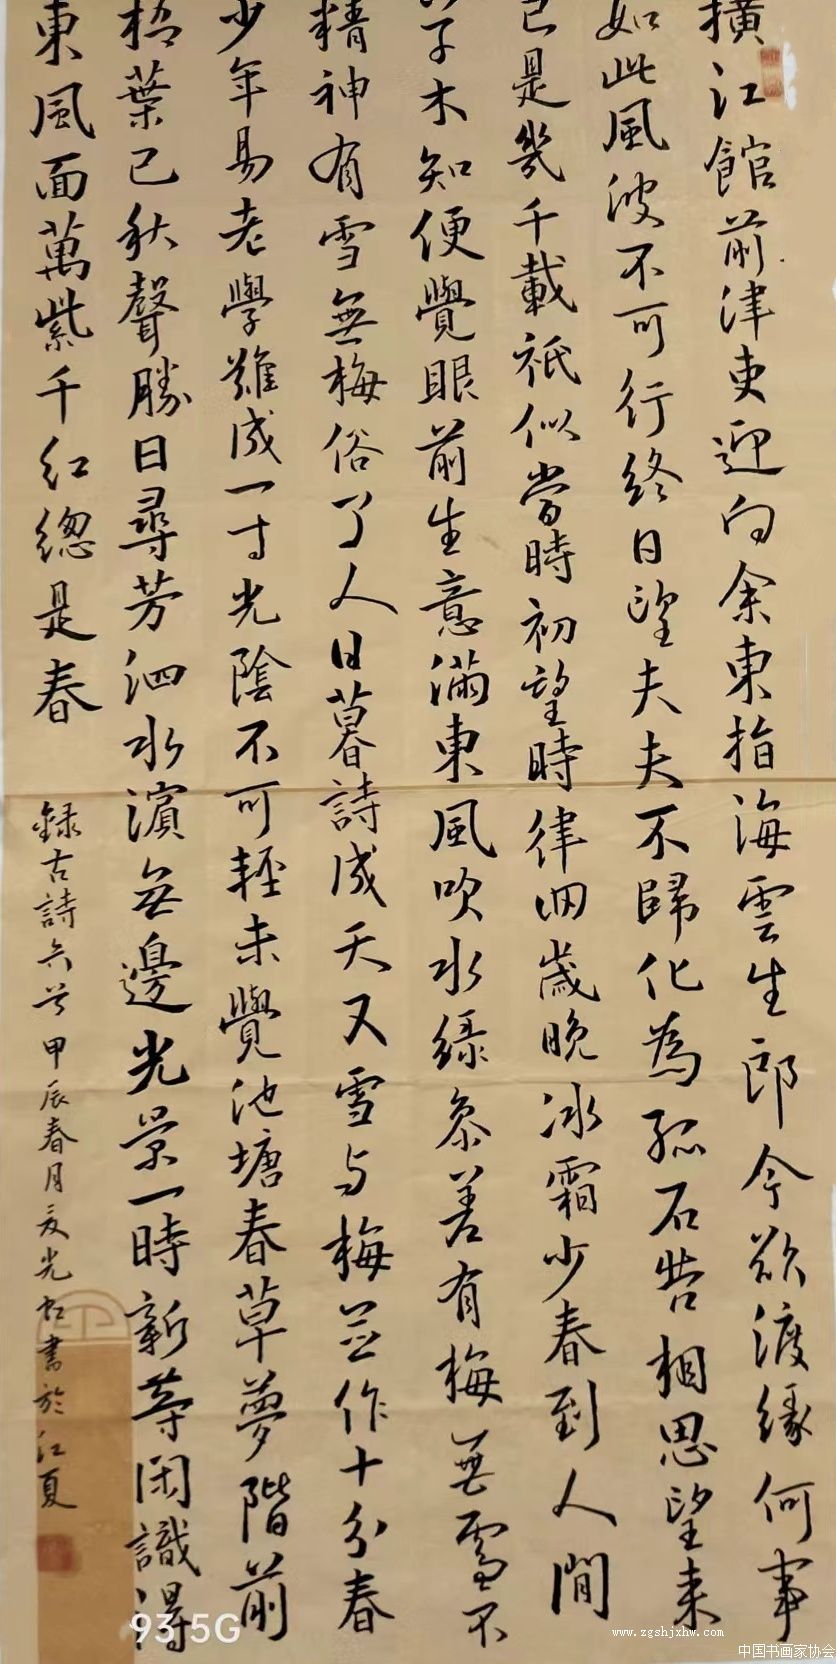 橫江館前津吏迎向余東指海雲生郎今欲渡緣何事
如此風波不可行終日望夫夫不歸化為孤石苦相思望來
已是幾千載祇似當時初望時律回歲晚冰霜少春到人間
草木知便覺眼前生意滿東風吹水綠參差有梅無雪不
精神有雪無梅俗了人日暮詩成天又雪与梅並作十分春
少年易老學難成一寸光陰不可輕未覺池塘春草夢階前
梧葉已秋聲勝日尋芳泗水濱無邊光景一時新等閑識得
東風面萬紫千紅總是春
錄古詩六首甲辰春月 光 書於江夏
93:5G
www.zgshjxhw.com
中国书画家协会